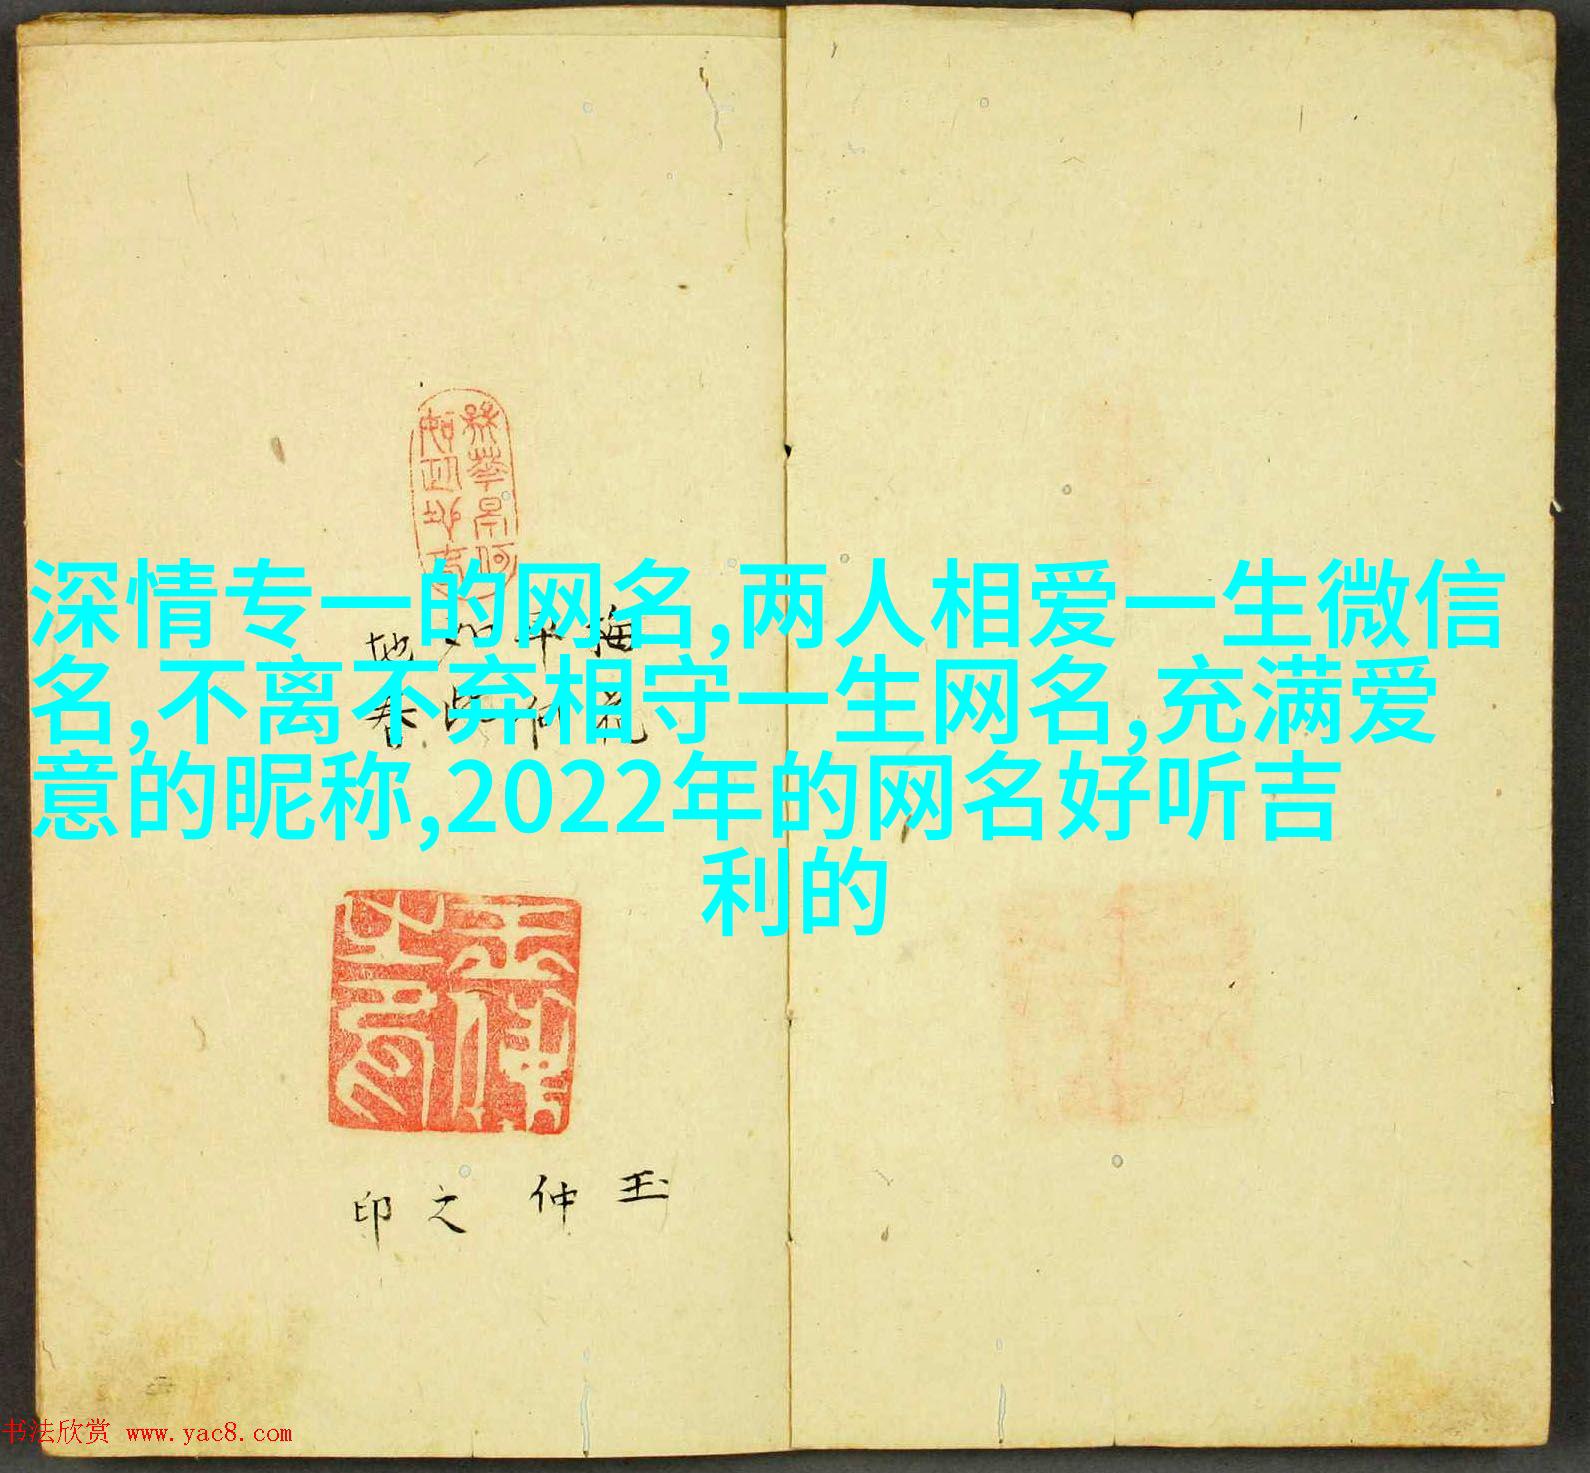 深情专一的网名,两人相爱一生微信
名,不离不弃相守一生网名,充满爱
意的昵称,2022年的网名好听吉
利的
玉仲之印
书法欣赏 www.yac8.com